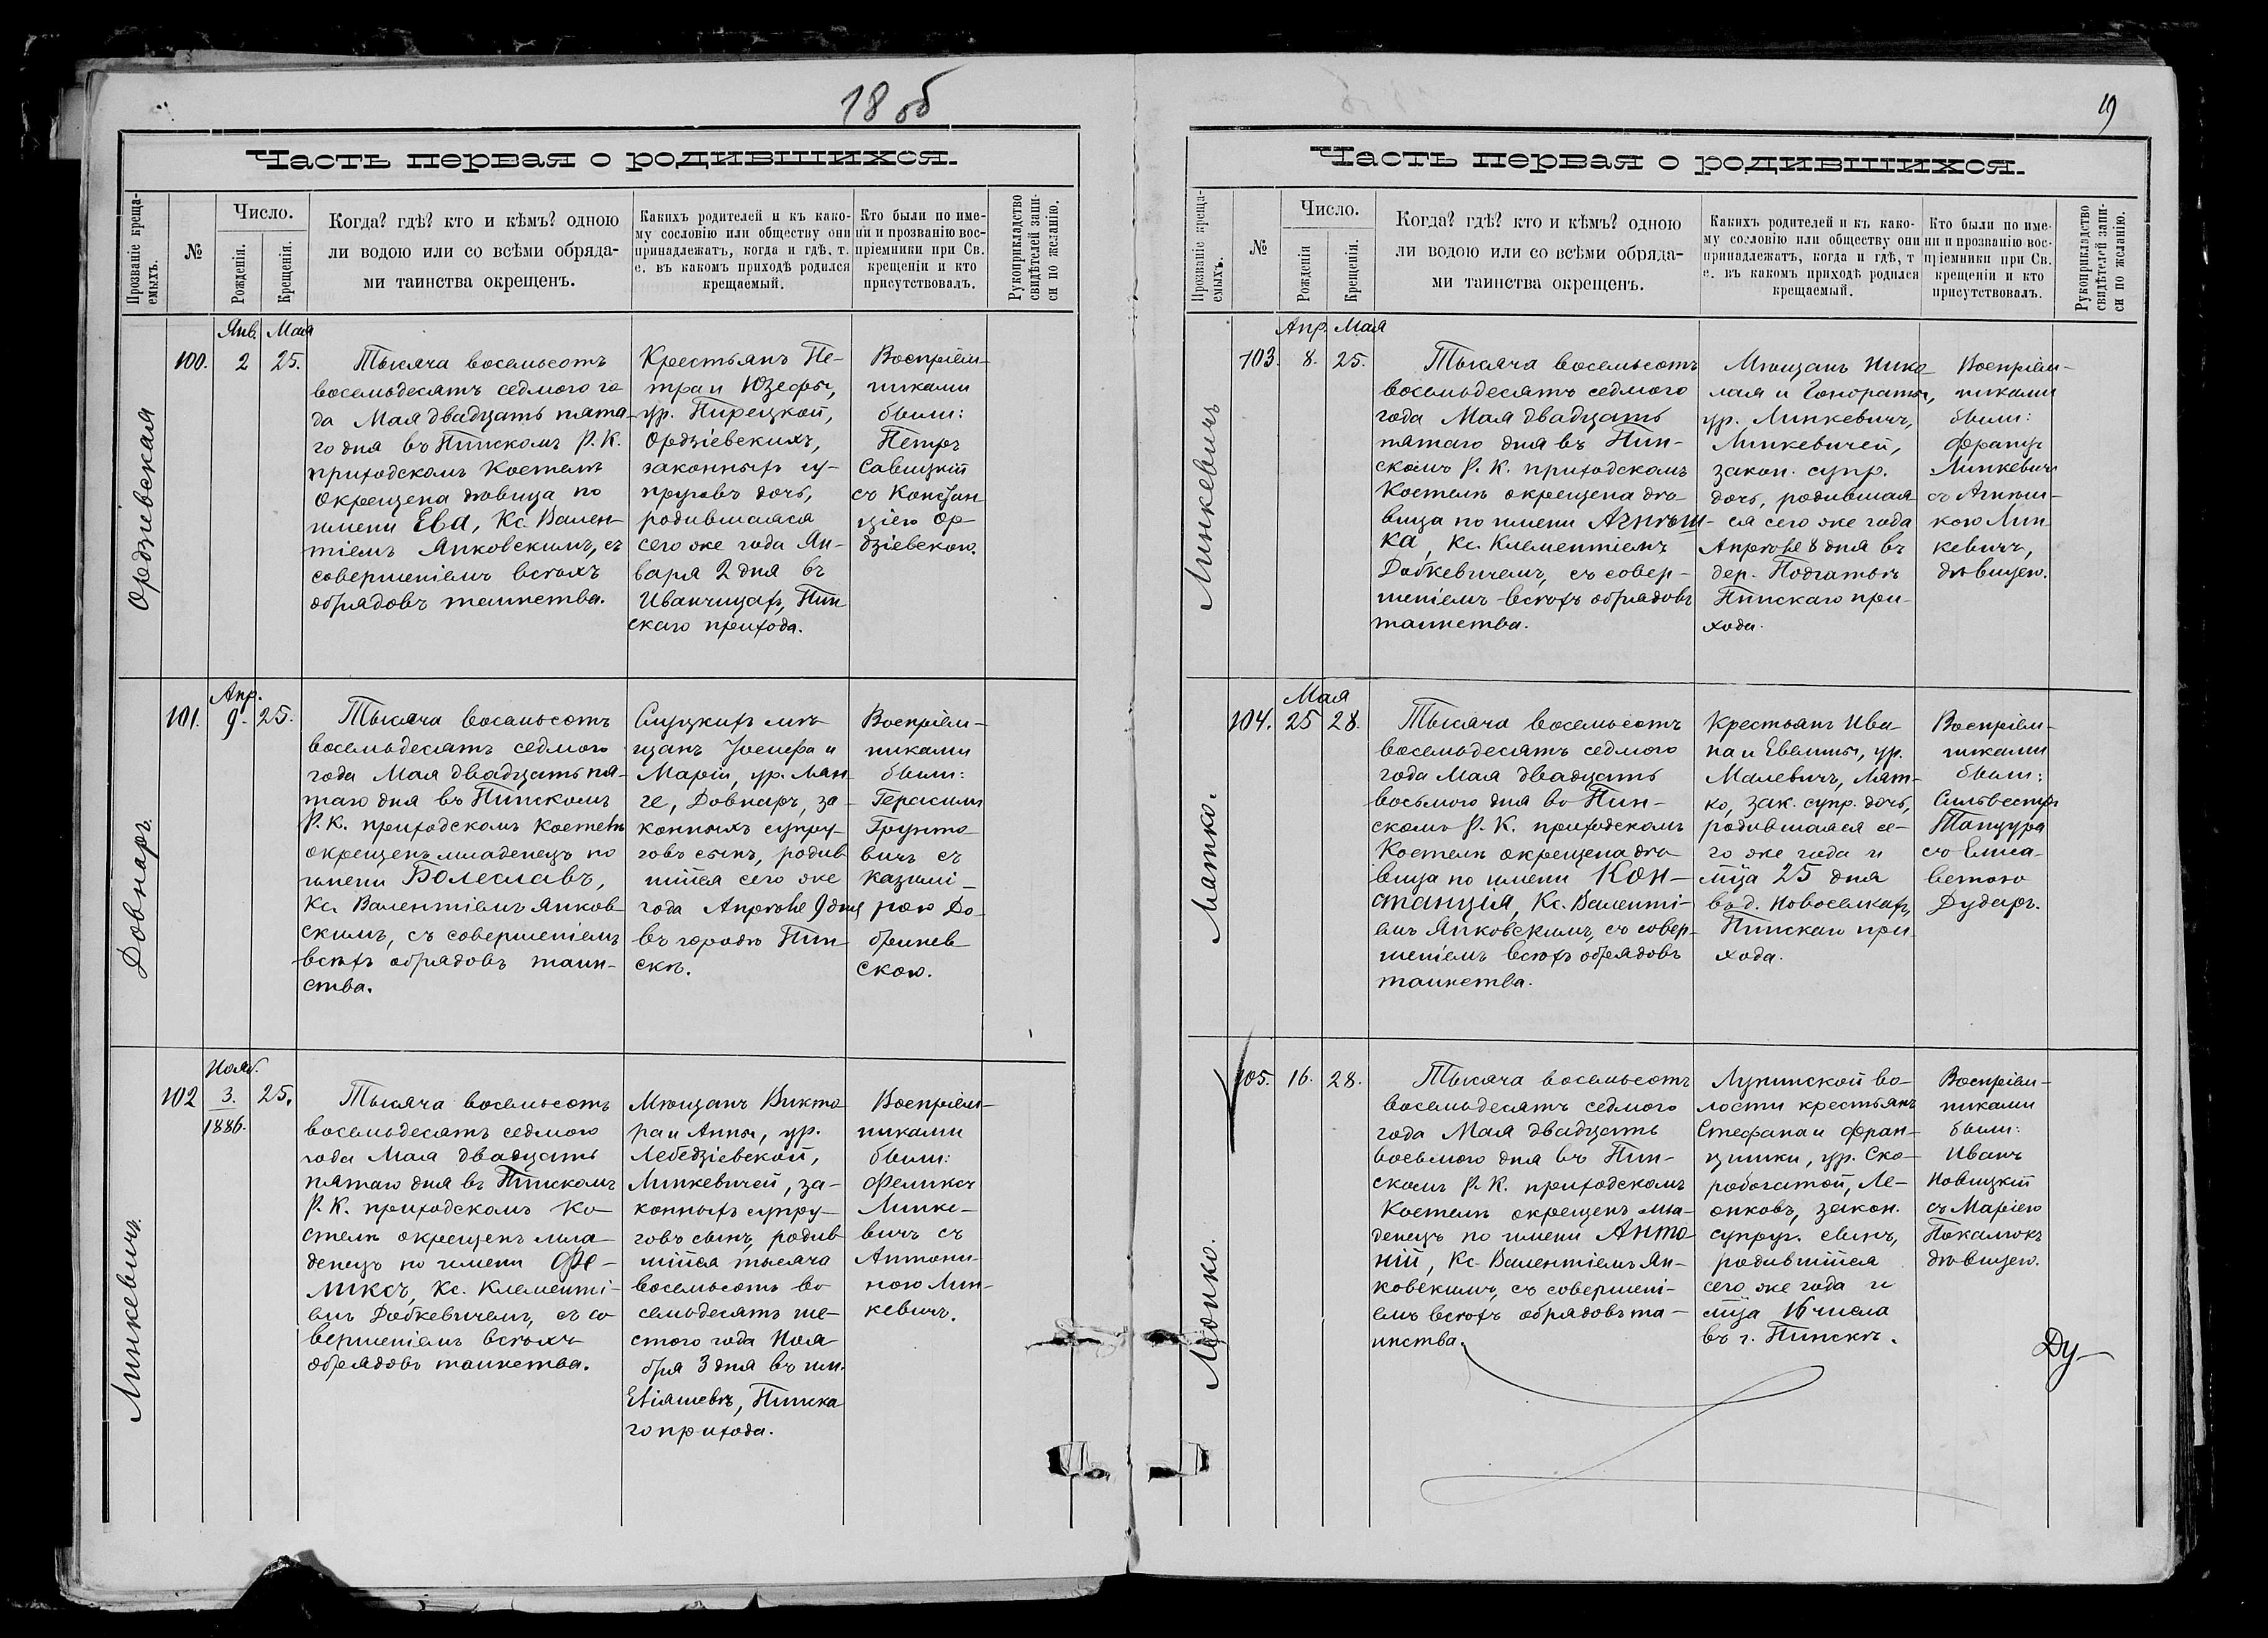 18 об
Часть первая о родившихся.
Прозваніе креща-
емыхъ.
№
Число.
Рожденія.
Крещенія.
Когда? гдѣ? кто и кѣмъ? одною
ли водою или со всѣми обряда-
ми таинства окрещенъ.
Какихъ родителей и къ како-
му сословію или обществу они
принадлежатъ, когда и гдѣ, т.
е. въ какомъ приходѣ родился
крещаемый.
Кто были по име-
ни и прозванію вос-
пріемники при Св.
крещеніи и кто
присутствовалъ.
Рукоприкладство
свидѣтелей запи-
си по желанію.
Ордзіевская
100.
Янв.
2
Мая
25.
Тысяча восемьсотъ
восемьдесятъ седмого го-
да Мая двадцать пята-
го дня въ Пинскомъ Р. К.
приходскомъ Костелѣ
окрещена дѣвица по
имени Ева, Кс. Вален-
тіемъ Янковскимъ, съ
совершеніемъ всѣхъ
обрядовъ таинства.
Крестьянъ Пе-
тра и Юзефы,
ур. Пирецкой,
Ордзіевскихъ,
законныхъ су-
пруговъ дочь,
родившаяся
сего же года Ян-
варя 2 дня въ
Иванчицахъ, Пин
скаго прихода.
Воспріем-
никами
были:
Петръ
Савицкій
съ Констан
ціею Ор
дзіевскою.
Довнаръ.
101.
Апр.
9.
25.
Тысяча восемьсотъ
восемьдесятъ седмого
года Мая двадцать пя-
таго дня въ Пинскомъ
Р. К. приходскомъ Костелѣ
окрещенъ младенецъ по
имени Болеславъ,
Кс. Валентіемъ Янков
скимъ, съ совершеніемъ
всѣхъ обрядовъ таин-
ства.
Слуцкихъ мѣ-
щанъ Іосифа и
Маріи, ур. Лян-
ге, Довнаръ, за-
конныхъ супру-
говъ сынъ, родив
шійся сего же
года Апрѣля 9 дня
въ городѣ Пин
скѣ.
Воспріем-
никами
были:
Герасимъ
Грунто
вичъ съ
Казимі-
рою До-
бринев
скою.
Линкевичъ.
102
Нояб.
3.
1886.
25.
Тысяча восемьсотъ
восемьдесятъ седмого
года Мая двадцать
пятаго дня въ Пинскомъ
Р. К. приходскомъ Ко-
стелѣ окрещенъ мла-
денецъ по имени Фе-
ликсъ, Кс. Клементі-
емъ Добкевичемъ, съ со
вершеніемъ всѣхъ
обрядовъ таинства.
Мѣщанъ Викто
ра и Анны, ур.
Лебедзіевской,
Линкевичей, за-
конныхъ супру-
говъ сынъ, родив
шійся тысяча
восемьсотъ во
семьдесятъ ше-
стого года Ноя
бря 3 дня въ им.
Пинска
го прихода.
Воспріем-
никами
были:
Феликсъ
Линке-
вичъ съ
Антони-
ною Лин-
кевичъ.
19
Часть первая о родившихся.
Прозваніе креща-
емыхъ.
№
Число.
Рожденія
Крещенія.
Когда? гдѣ? кто и кѣмъ? одною
ли водою или со всѣми обряда-
ми таинства окрещенъ.
Какихъ родителей и къ како-
му сословію или обществу они
принадлежатъ, когда и гдѣ, т
е. въ какомъ приходѣ родился
крещаемый.
Кто были по име-
ни и прозванію вос-
пріемники при Св.
крещеніи и кто
присутствовалъ.
Рукоприкладство
свидѣтелей запи-
си по желанію.
Линкевичъ
103.
Апр.
8.
Мая
25.
Тысяча восемьсотъ
восемьдесятъ седмого
года Мая двадцать
пятаго дня въ Пин-
скомъ Р. К. приходскомъ
Костелѣ окрещена дѣ-
вица по имени Агнѣш-
ка, Кс. Клементіемъ
Добкевичемъ, съ совер-
шеніемъ всѣхъ обрядовъ
таинства.
Мѣщанъ Нико
лая и Гонораты,
ур. Линкевичъ,
Линкевичей,
закон. супр.
дочь, родившая
ся сего же года
Апрѣля 8 дня въ
дер. Подгатьѣ
Пинскаго при-
хода.
Воспріем-
никами
были:
Францъ
Линкевичъ
съ Агнѣш-
кою Лин
кевичъ,
дѣвицею.
Матко.
104.
Мая
25
28.
Тысяча восемьсотъ
восемьдесятъ седмого
года Мая двадцать
восьмого дня въ Пин-
скомъ Р. К. приходскомъ
Костелѣ окрещена дѣ-
вица по имени Кон-
станція, Кс. Валенті-
емъ Янковскимъ, съ совер-
шеніемъ всѣхъ обрядовъ
таинства.
Крестьянъ Ива-
на и Евелины, ур.
Малевичъ, Мат-
ко, зак. супр. дочь,
родившаяся се-
го же года и
мѣца 25 дня
въ д. Новоселкахъ,
Пинскаго при
хода.
Воспріем-
никами
были:
Сильвестръ
Танцура
съ Елиса-
ветою
Дударъ.
Леонко.
105.
16.
28.
Тысяча восемьсотъ
восемьдесятъ седмого
года Мая двадцать
восьмого дня въ Пин-
скомъ Р. К. приходскомъ
Костелѣ окрещенъ мла-
денецъ по имени Анто
ній, Кс. Валентіемъ Ян-
ковскимъ, съ совершені-
емъ всѣхъ обрядовъ та-
инства.
Лунинской во-
лости крестьянъ
Стефана и Фран-
цишки, ур. Ско-
робогатой, Ле-
онковъ, закон.
супруг. сынъ,
родившійся
сего же года и
мѣца 16 числа
въ г. Пинскѣ.
Воспріем-
никами
были:
Иванъ
Новицкій
съ Маріею
Покалюкъ
дѣвицею.
Ду